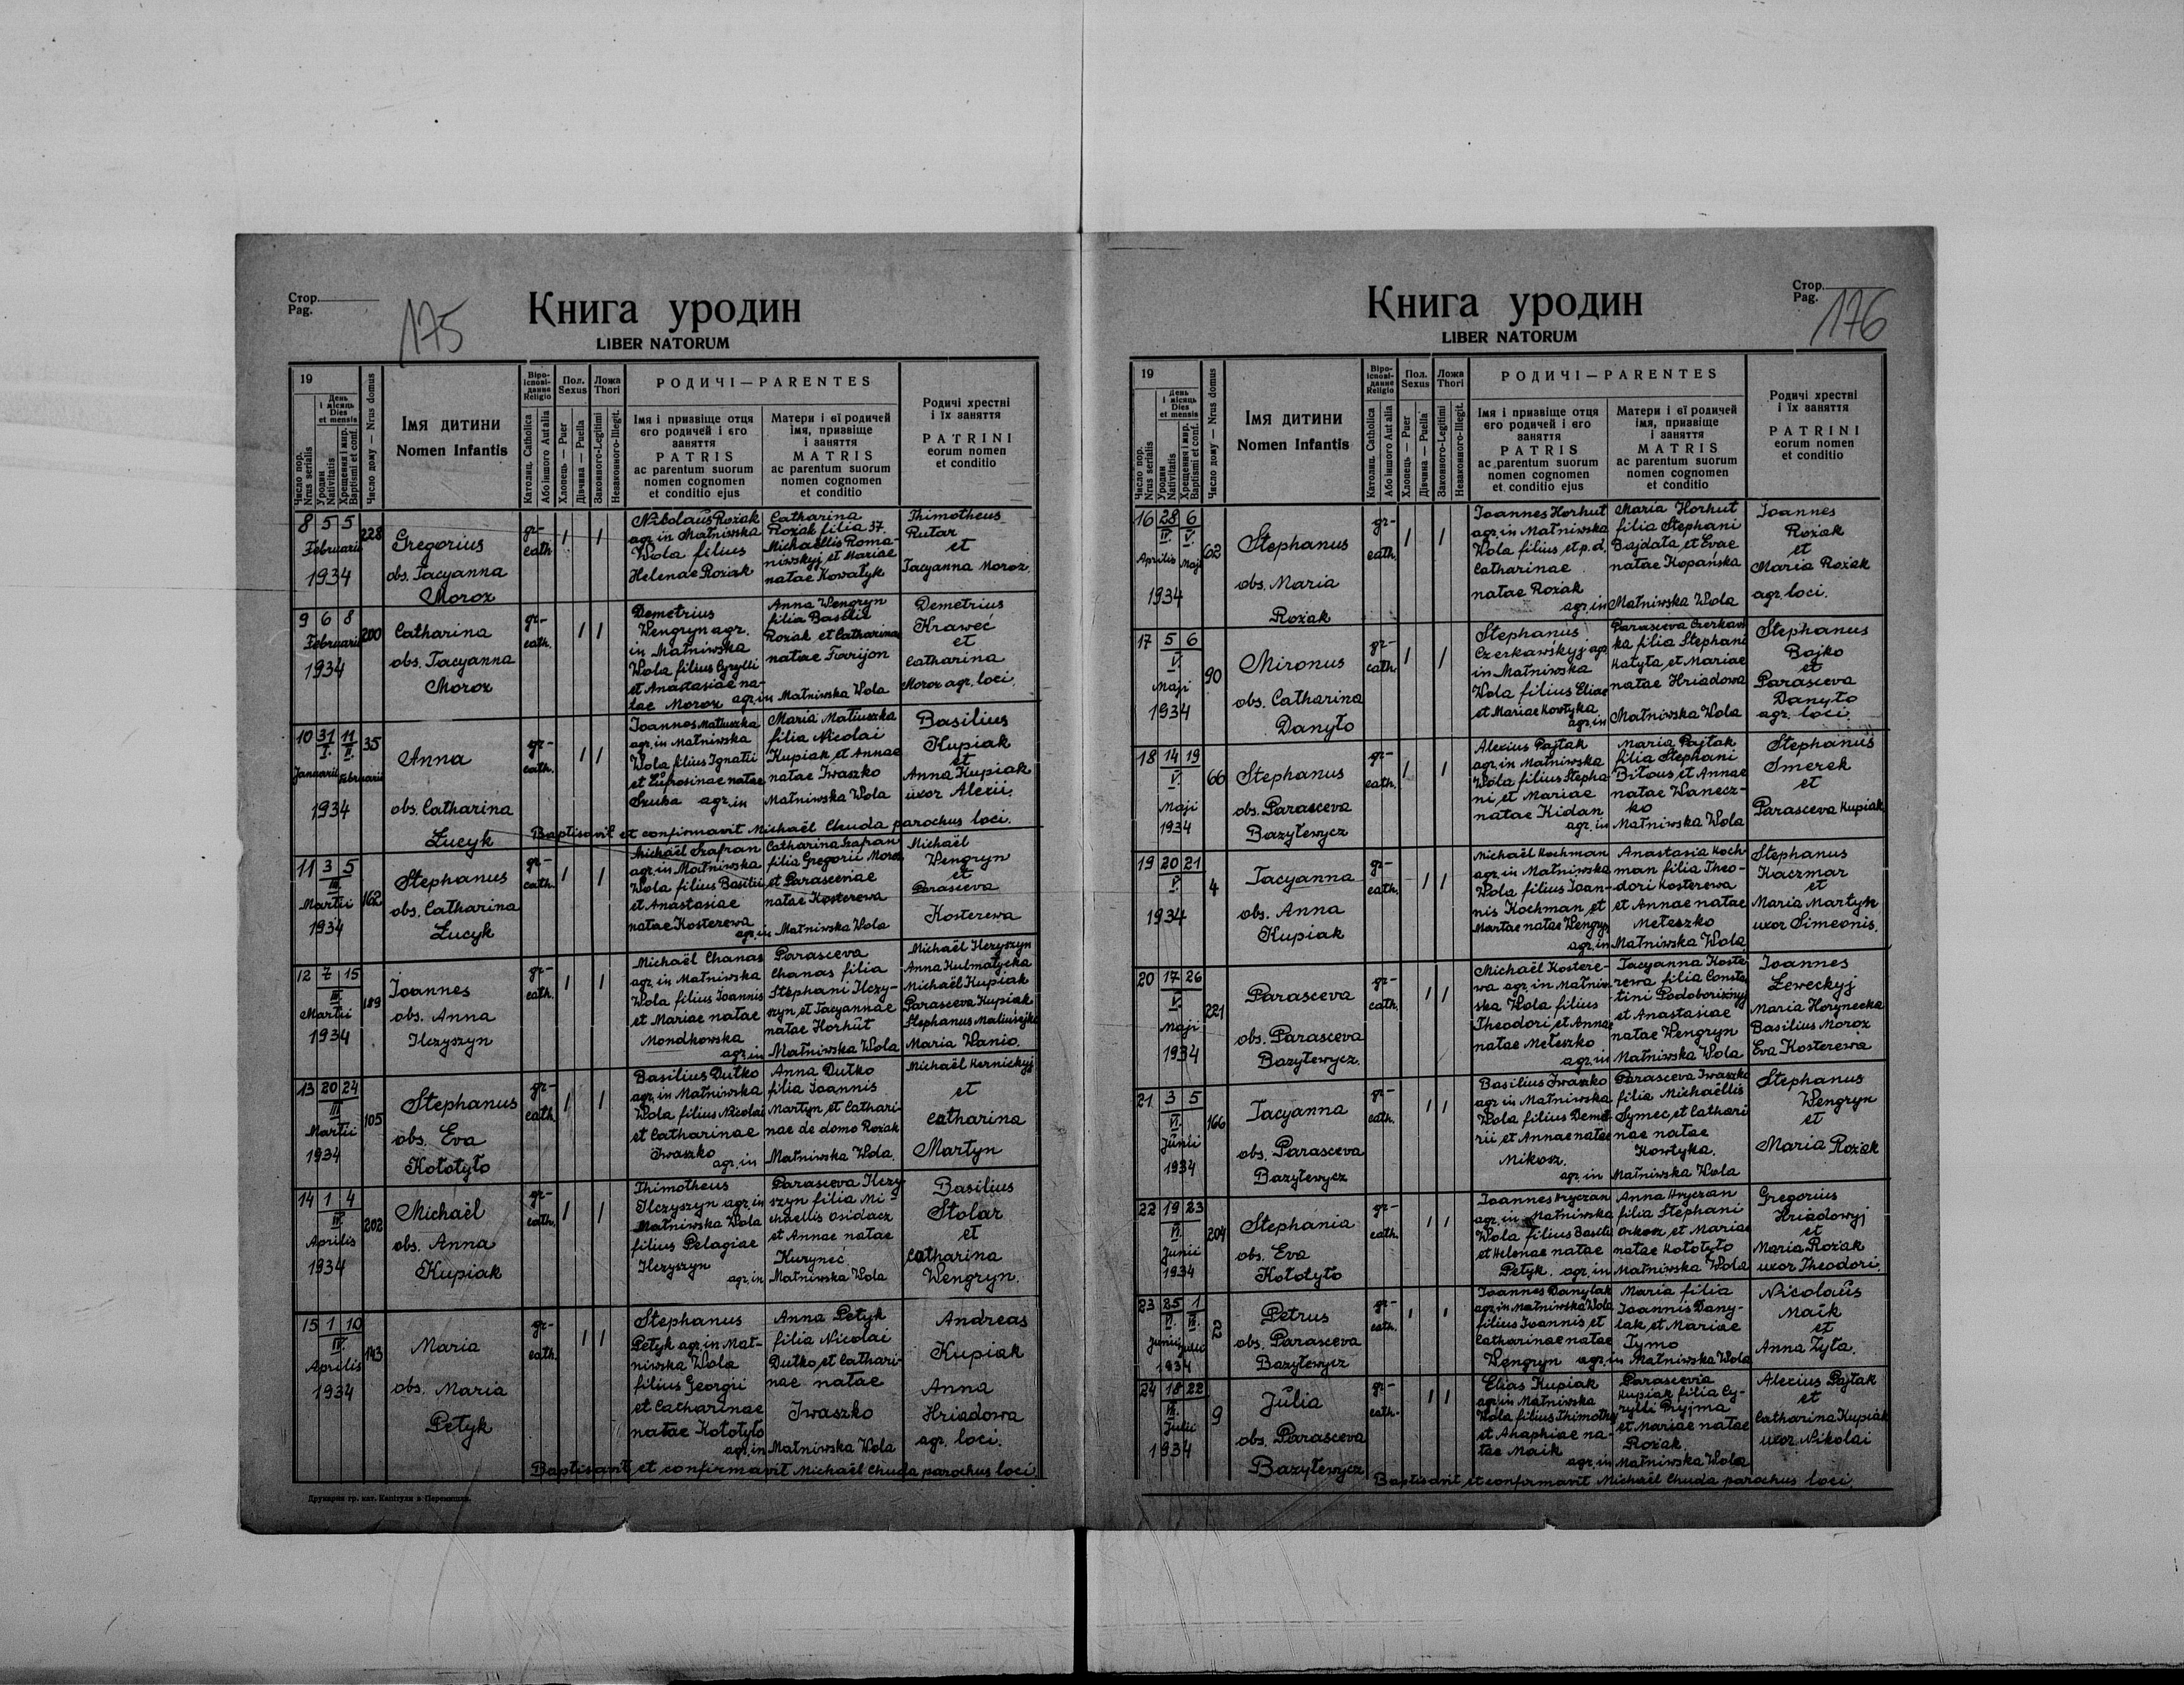 Стор.
Pag.
175
Книга уродин
LIBER NATORUM
19
Число пор.
Nrus serialis
День
і місяць
Dies
et mensis
Уродин
Nativitatis
Хрещення і мир.
Baptismi et conf.
Число дому — Nrus domus
Імя дитини
Nomen Infantis
Віро-
ісповi-
дание
Religio
Католиц. Catholica
Або іншого Aut alia
Пол.
Sexus
Хлопець — Puer
Дівчина — Puella
Ложа
Thori
Законного-Legitimi
Незаконного-Illegit.
РОДИЧІ — PARENTES
Імя і призвіще отця
єго родичей і єго
заняття
PATRIS
ac parentum suorum
nomen cognomen
et conditio ejus
Матери і єї родичей
імя, призвіще
і заняття
MATRIS
ac parentum suorum
nomen cognomen
et conditio
Родичі хрестні
і їх заняття
PATRINI
eorum nomen
et conditio
8 5 5
Februarii
1934
228
Gregorius
obs. Tacyanna
Moroz
gr-
cath.
Nikolaus Rożak
agr. in Małniwska
Wola filius
Helenae Rożak
Catharina
Rożak filia 37.
Michaëlis Roma-
niwskyj et Mariae
natae Kowałyk
Thimotheus
Rutar
et
Tacyanna Moroz.
9 6 8
Februarii
1934
200
Catharina
obs. Tacyanna
Moroz
gr-
cath.
Demetrius
Wengryn agr.
in Małniwska
Wola filius Cyrylli
et Anastasiae na-
tae Moroz agr. in
Anna Wengryn
filia Basilii
Rożak et Catharina
natae Farijon
Małniwska Wola
Demetrius
Kraweć
et
Catharina
Moroz agr. loci.
10 31 11
I. II.
Januarii Februarii
1934
35
Anna
obs. Catharina
Łucyk
gr-
cath.
Joannes Matiuszka
agr. in Małniwska
Wola filius Ignatii
et Eufrosinae natae
Szuba agr. in
Maria Matiuszka
filia Nicolai
Kupiak et Annae
natae Iwaszko
Małniwska Wola
Basilius
Kupiak
et
Anna Kupiak
uxor Alexii.
Baptisavit et confirmavit Michaël Chuda parochus loci.
11 3 5
III.
Martii
1934
162
Stephanus
obs. Catharina
Łucyk
gr-
cath.
Michaël Szafran
agr. in Małniwska
Wola filius Basilii
et Anastasiae
natae Kosterewa
agr. in
Catharina Szafran
filia Gregorii Moroz
et Parascenae
natae Kosterewa
Małniwska Wola
Michaël
Wengryn
et
Parasceva
Kosterewa
12 7 15
III.
Martii
1934
189
Joannes
obs. Anna
Ilczyszyn
gr-
cath.
Michaël Chanas
agr. in Małniwska
Wola filius Joannis
et Mariae natae
Mondkowska
agr. in
Parasceva
Chanas filia
Stephani Ilczy-
szyn et Tacyannae
natae Horhut
Małniwska Wola
Michaël Ilczyszyn
Anna Kulmatycka
Michaël Kupiak
Parasceva Kupiak
Stephanus Matiusejko
Maria Wanio.
13 20 24
III
Martii
1934
105
Stephanus
obs. Eva
Kołotyło
gr-
cath.
Basilius Dutko
agr. in Małniwska
Wola filius Nicolai
et Catharinae
Iwaszko
agr. in
Anna Dutko
filia Joannis
Martyn et Cathari-
nae de domo Rożak
Małniwska Wola.
Michaël Kernickyj
et
Catharina
Martyn
14 1 4
IV
Aprilis
1934
202
Michaël
obs. Anna
Kupiak
gr-
cath.
Thimotheus
Ilczyszyn agr. in
Małniwska Wola
filius Pelagiae
Ilczyszyn
agr. in
Parasceva Ilczy
szyn filia Mi-
chaëlis Osidacz
et Annae natae
Kuryneć
Małniwska Wola
Basilius
Stolar
et
Catharina
Wengryn.
15 1 10
IV.
Aprilis
1934
143
Maria
obs. Maria
Petyk
gr-
cath.
Stephanus
Petyk agr. in Mał-
niwska Wola
filius Georgii
et Catharinae
natae Kołotyło
agr. in
Anna Petyk
filia Nicolai
Dutko et Cathari-
nae natae
Iwaszko
Małniwska Wola
Andreas
Kupiak
Anna
Hriadowa
agr. loci.
Baptisavit et confirmavit Michaël Chuda parochus loci
Друкарня гр. кат. Капітули в Перемишли.
Стор.
Pag.
176
Книга уродин
LIBER NATORUM
19
Число пор.
Nrus serialis
День
і місяць
Dies
et mensis
Уродин
Nativitatis
Хрещення і мир.
Baptismi et conf.
Число дому — Nrus domus
Імя дитини
Nomen Infantis
Віро-
ісповi-
дание
Religio
Католиц. Catholica
Або іншого Aut alia
Пол.
Sexus
Хлопець — Puer
Дівчина — Puella
Ложа
Thori
Законного-Legitimi
Незаконного-Illegit.
РОДИЧІ — PARENTES
Імя і призвіще отця
єго родичей і єго
заняття
PATRIS
ac parentum suorum
nomen cognomen
et conditio ejus
Матери і єї родичей
імя, призвіще
і заняття
MATRIS
ac parentum suorum
nomen cognomen
et conditio
Родичі хрестні
і їх заняття
PATRINI
eorum nomen
et conditio
16 28 6
IV. V.
Aprilis Maji
1934
62
Stephanus
obs. Maria
Rożak
gr-
cath.
Joannes Horhut
agr. in Małniwska
Wola filius et p. d.
Catharinae
natae Rożak
agr. in
Maria Horhut
filia Stephani
Bajdała et Evae
natae Kopańska
Małniwska Wola
Joannes
Rożak
et
Maria Rożak
agr. loci.
17 5 6
V.
Maji
1934
90
Mironus
obs. Catharina
Danyło
gr-
cath.
Stephanus
Czerkawśkyj agr.
in Małniwska
Wola filius Eliae
et Mariae Kowtyka
agr. in
Parasceva Czerkaw
ka filia Stephani
Katyta et Mariae
natae Hriadowa
Małniwska Wola
Stephanus
Bojko
et
Parasceva
Danyło
agr. loci.
18 14 19
V.
Maji
1934
66
Stephanus
obs. Parasceva
Bazylewycz
gr-
cath.
Alexius Pajtak
agr. in Małniwska
Wola filius Stepha
ni et Mariae
natae Kidan
agr. in
Maria Pajtak
filia Stephani
Biłous et Annae
natae Wanecz-
ko
Małniwska Wola
Stephanus
Smerek
et
Parasceva Kupiak
19 20 21
V.
1934
4
Tacyanna
obs. Anna
Kupiak
gr-
cath.
Michaël Kochman
agr. in Małniwska
Wola filius Joan-
nis Kochman et
Martae natae Wengryn
agr. in
Anastasia Koch-
man filia Theo-
dori Kosterewa
et Annae natae
Meteszko
Małniwska Wola
Stephanus
Kaczmar
et
Maria Martyn
uxor Simeonis.
20 17 26
V.
Maji
1934
221
Parasceva
obs. Parasceva
Bazylewycz.
gr-
cath.
Michaël Kostere-
wa agr. in Małniw-
ska Wola filius
Theodori et Annae
natae Meteszko
agr. in
Tacyanna Koste
rewa filia Consta
tini Podoboriżnyj
et Anastasiae
natae Wengryn
Małniwska Wola
Joannes
Łeweckyj
Maria Horynecka
Basilius Moroz
Eva Kosterewa
21 3 5
VI.
Junii
1934
166
Tacyanna
obs. Parasceva
Bazylewycz
gr-
cath.
Basilius Iwaszko
agr. in Małniwska
Wola filius Demet-
rii et Annae natae
Mikosz.
agr. in
Parasceva Iwaszko
filia Michaëllis
Symec et Cathari
nae natae
Kowtyka.
Małniwska Wola
Stephanus
Wengryn
et
Maria Rożak
22 19 23
VI.
Junii
1934
204
Stephania
obs. Eva
Kołotyło
gr-
cath.
Joannes Hryczan
agr. in Małniwska
Wola filius Basilii
et Helenae natae
Petyk. agr. in
Anna Hryczan
filia Stephani
Orkosz et Mariae
natae Kołotyło
Małniwska Wola
Gregorius
Hriadowyj
et
Maria Rożak
uxor Theodori.
23 25 1
VI. VII.
Junii Julii
1934
2
Petrus
obs. Parasceva
Bazylewycz
gr-
cath.
Joannes Danylak
agr. in Małniwska Wola
filius Joannis et
Catharinae natae
Wengryn agr. in
Maria filia
Joannis Dany-
lak et Mariae
Tymo
Małniwska Wola
Nicolaus
Maik
et
Anna Zyła.
24 18 22
VII.
Julii
1934
9
Julia
obs. Parasceva
Bazylewycz
gr-
cath.
Elias Kupiak
agr. in Małniwska
Wola filius Thimothej
et Ahaphiae na-
tae Maik
agr. in
Parascevia
Kupiak filia Cy-
rylli Pryjma
et Mariae natae
Rożak.
Małniwska Wola
Alexius Pajtak
et
Catharina Kupiak
uxor Nikolai
Baptisavit et confirmavit Michaël Chuda parochus loci.